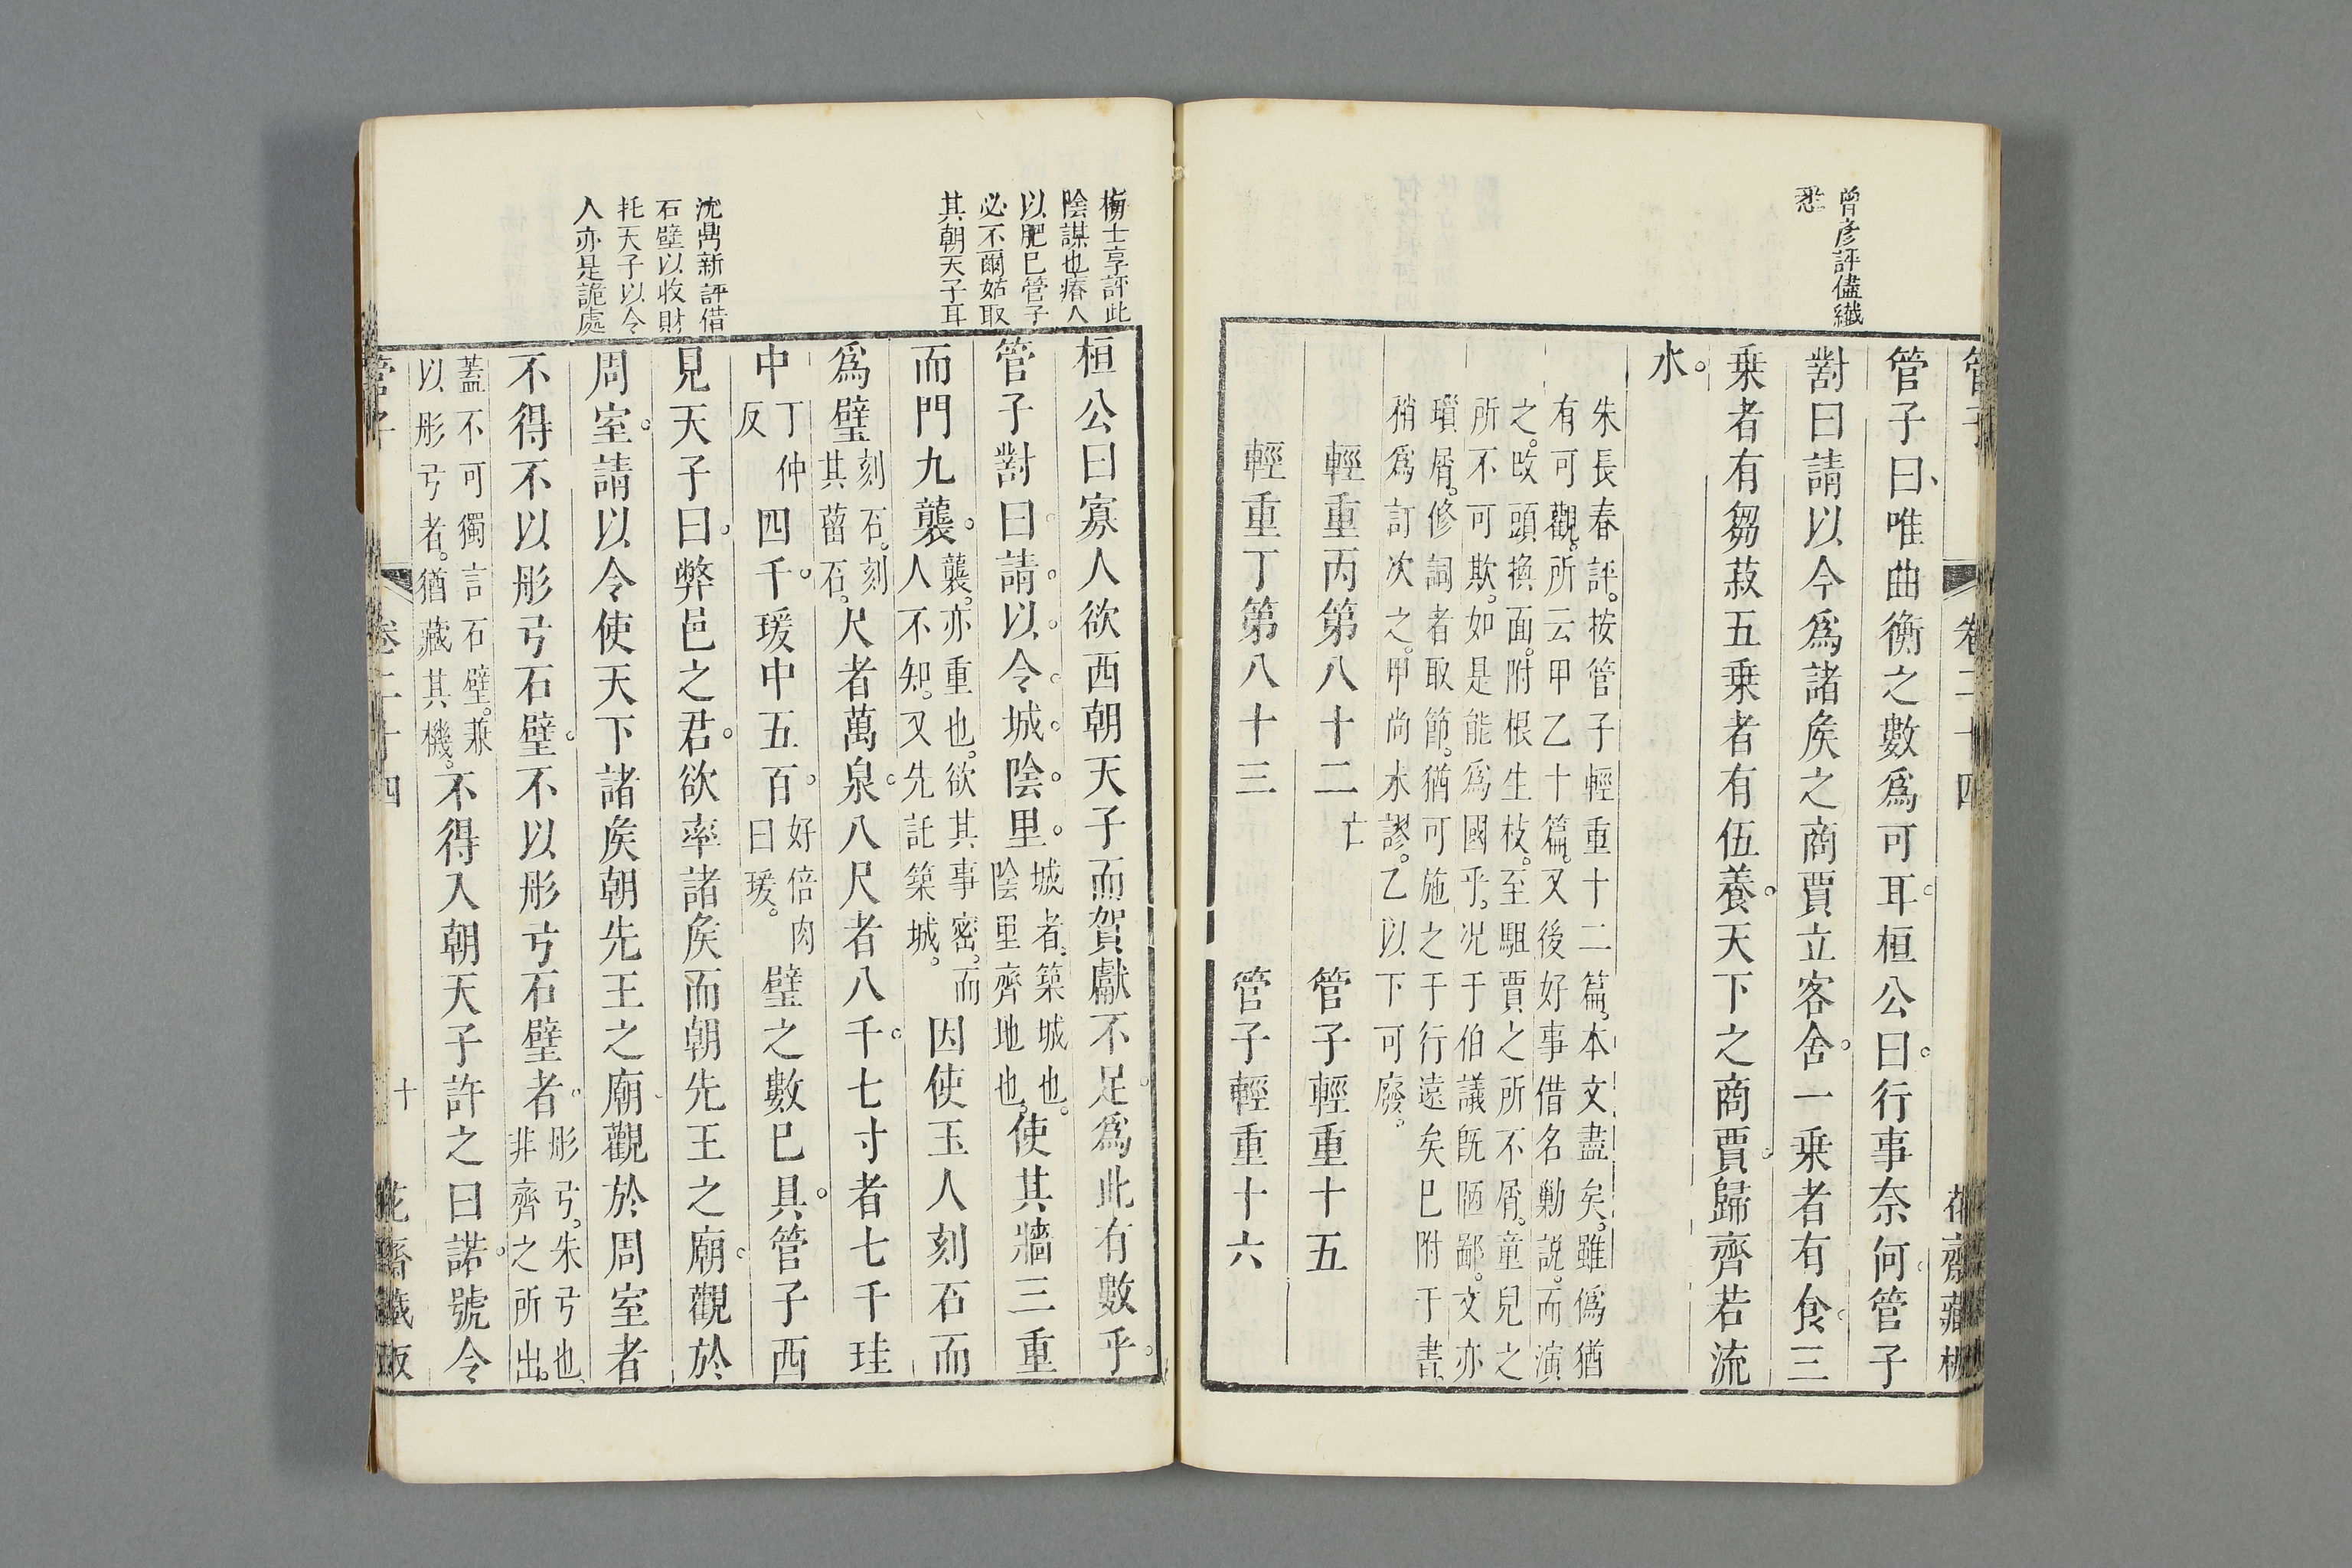 曾彥評儘纖
悉
管子曰、唯曲衡之數爲可耳。桓公曰。行事奈何。管子
對曰請以令爲諸矦之商賈立客舍。一乗者有食。三
乗者有芻菽五乗者有伍養。天下之商賈。歸齊若流
水。
朱長春評。按管子輕重十二篇。本文盡矣。雖僞猶
有可觀。所云甲乙十篇。又後好事借名勦說。而演
之。改頭換面。附根生枝。至駔賈之所不屑。童兒之
所不可欺。如是能爲國乎。况于伯議旣陋鄙。文亦
瑣屑。修詞者取節。猶可施之于行遠矣巳附于書
稍爲訂次之。甲尚未謬。乙以下可廢。
輕重丙第八十二 亡 管子輕重十五
輕重丁第八十三 管子輕重十六
管子 卷二十四 花齋藏板
梅士享評此
陰謀也瘠人
以肥巳管子
必不爾姑取
其朝天子耳
沈鼎新評借
石璧以收財
托天子以令
人亦是詭處
桓公曰寡人欲西朝天子而賀獻不足。爲此有數乎。
管子對曰。請。以。令。城。陰。里。城者。築城也。
陰里齊地也。使其牆三重
而門九襲。襲。亦重也。欲其事密。而
人不知。又先託築城。因使玉人刻石而
爲璧刻石。刻
其菑石。尺者萬泉。八尺者八千。七寸者七千珪
中丁仲
反四千。瑗中五百。好倍肉
曰瑗。璧之數巳具。管子西
見天子曰。弊邑之君。欲率諸矦而朝先王之廟。觀於
周室。請以令使天下諸矦朝先王之廟。觀於周室者
不得不以彤弓石璧。不以彤弓石璧者。彤弓。朱弓也、
非齊之所出。
蓋不可獨言石璧。兼
以彤弓者。猶藏其機。不得入朝天子許之曰諾。號令
管子 卷二十四 十 花齋藏板